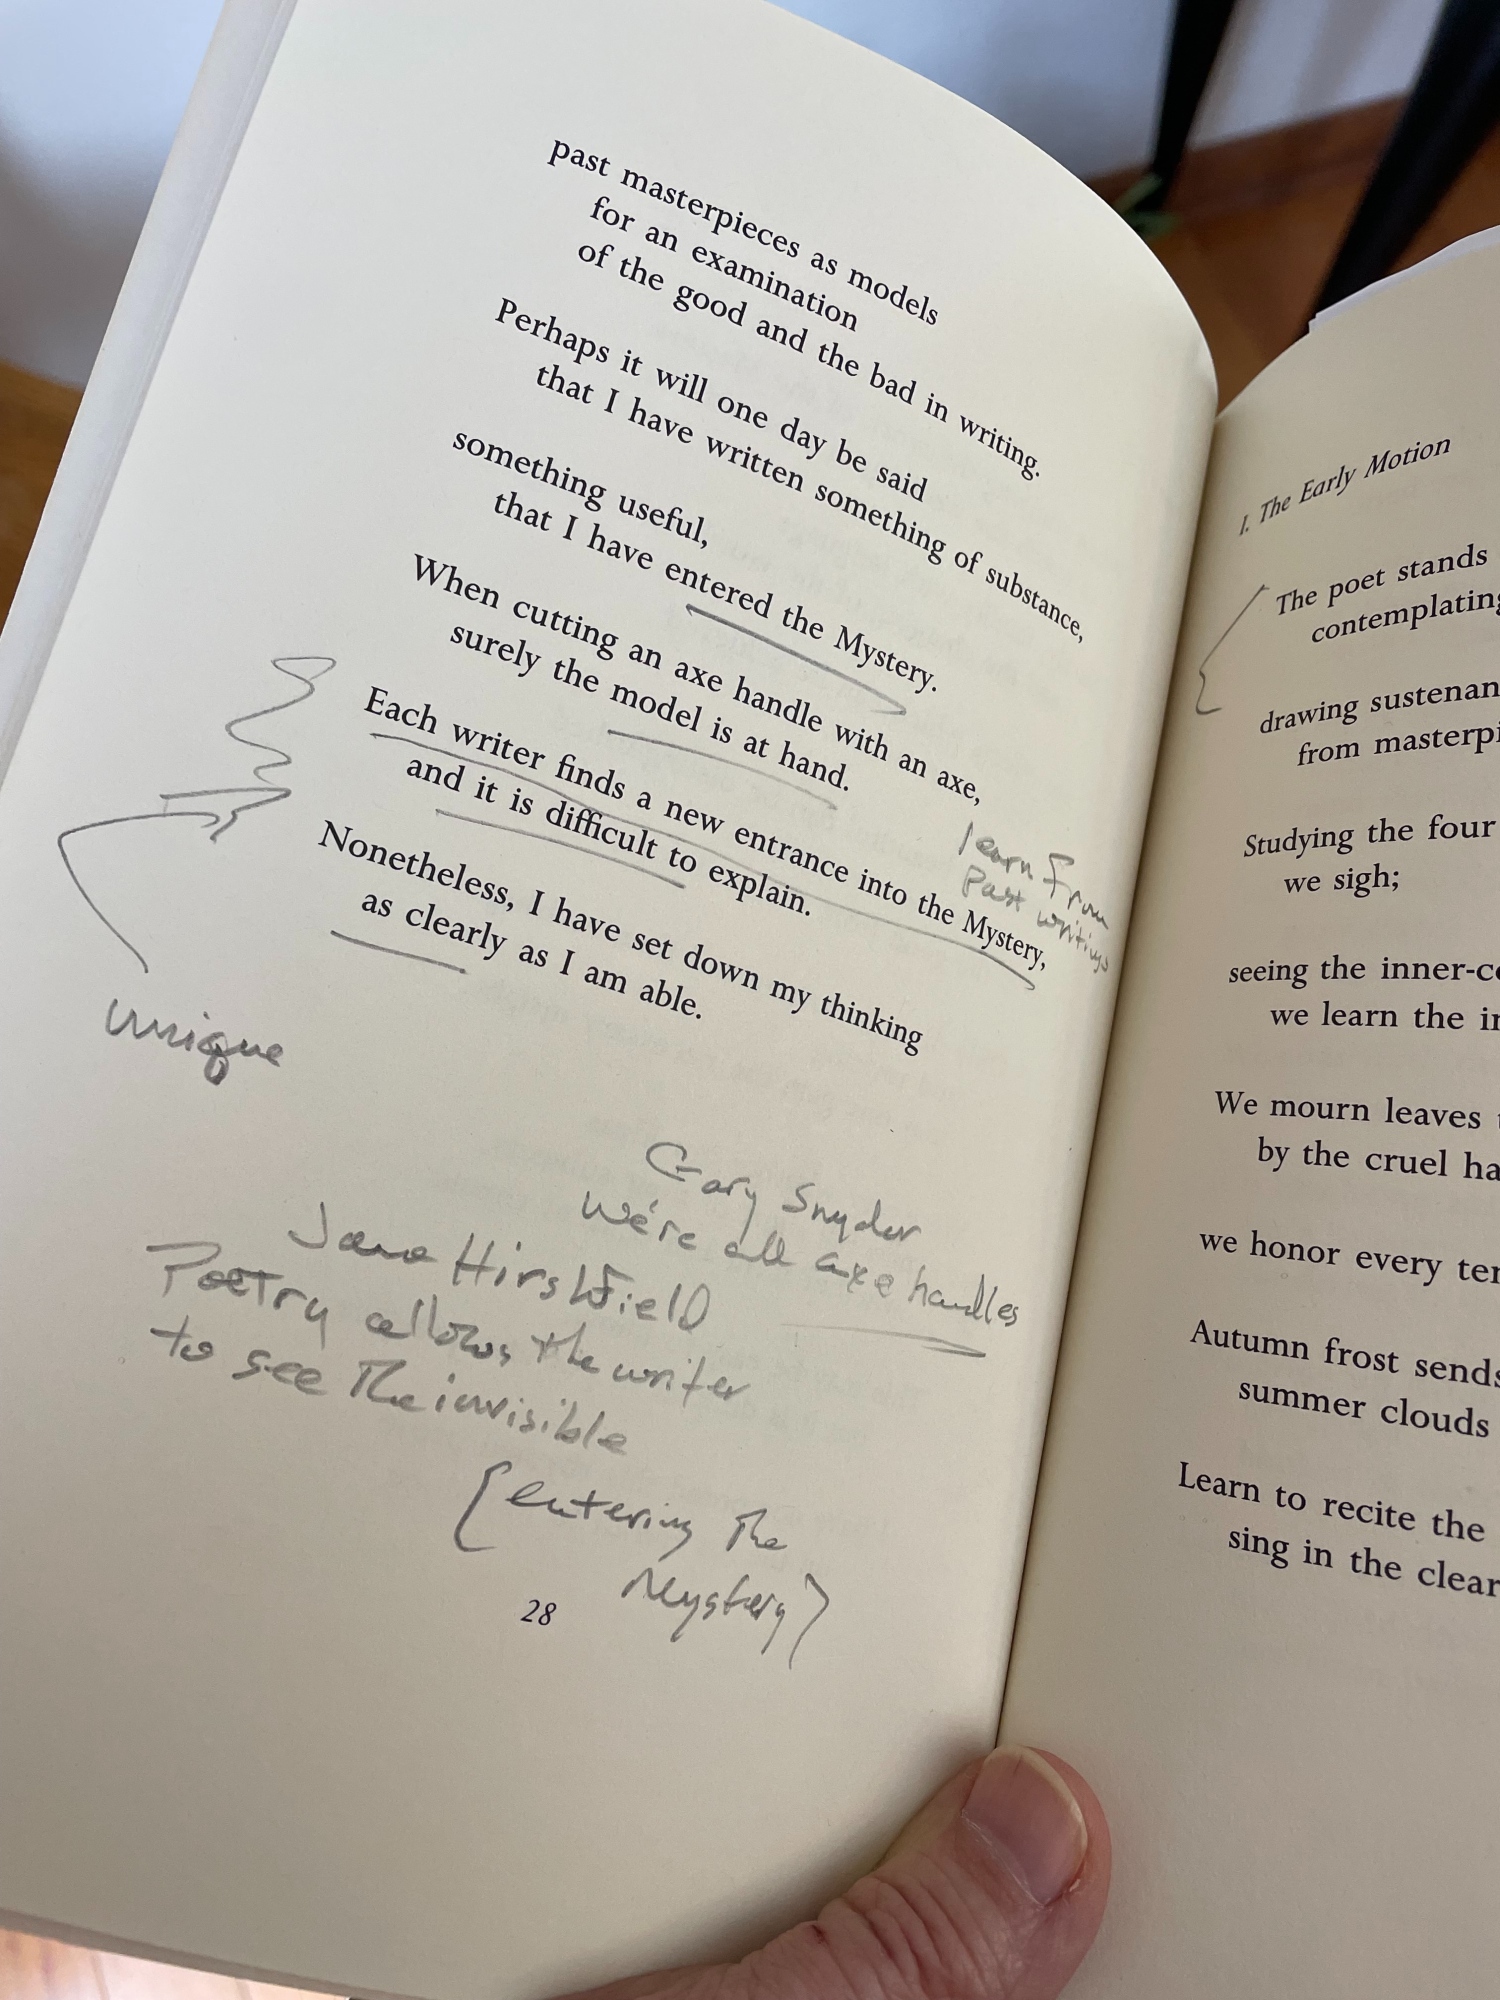 past masterpieces as models
for an examination
of the good and the bad in writing.
Perhaps it will one day be said
that I have written something of substance,
something useful,
that I have entered the Mystery.
When cutting an axe handle with an axe,
surely the model is at hand.
Each writer finds a new entrance into the Mystery,
and it is difficult to explain.
Nonetheless, I have set down my thinking
as clearly as I am able.
learn from
Past writings
unique
Gary Snyder
we're all axe handles
Jane Hirshfield
Poetry allows the writer
to see The invisible
(entering The
Mystery)
28
I. The Early Motion
The poet stands
contemplating
drawing sustenan
from masterpi
Studying the four
we sigh;
seeing the inner-co
we learn the in
We mourn leaves t
by the cruel ha
we honor every ten
Autumn frost sends
summer clouds
Learn to recite the
sing in the clear